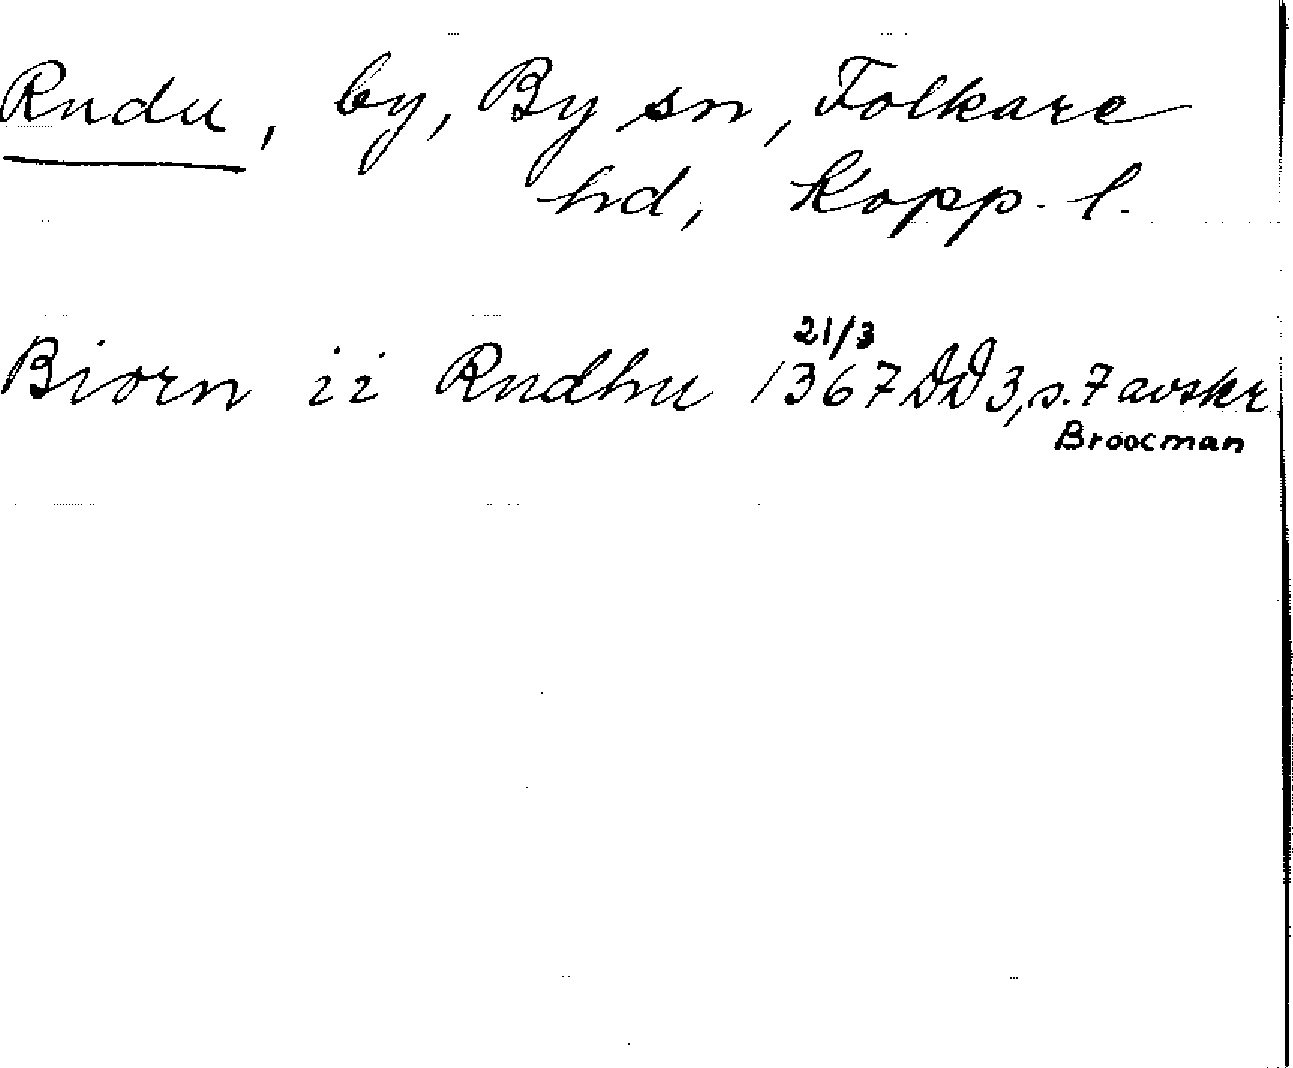 Rudu, by, By sn, Folkare
hd, Kopp. l.
21/3
Biorn ii Rudhu 1367 DD 3, s. 7 avskr
Broocman